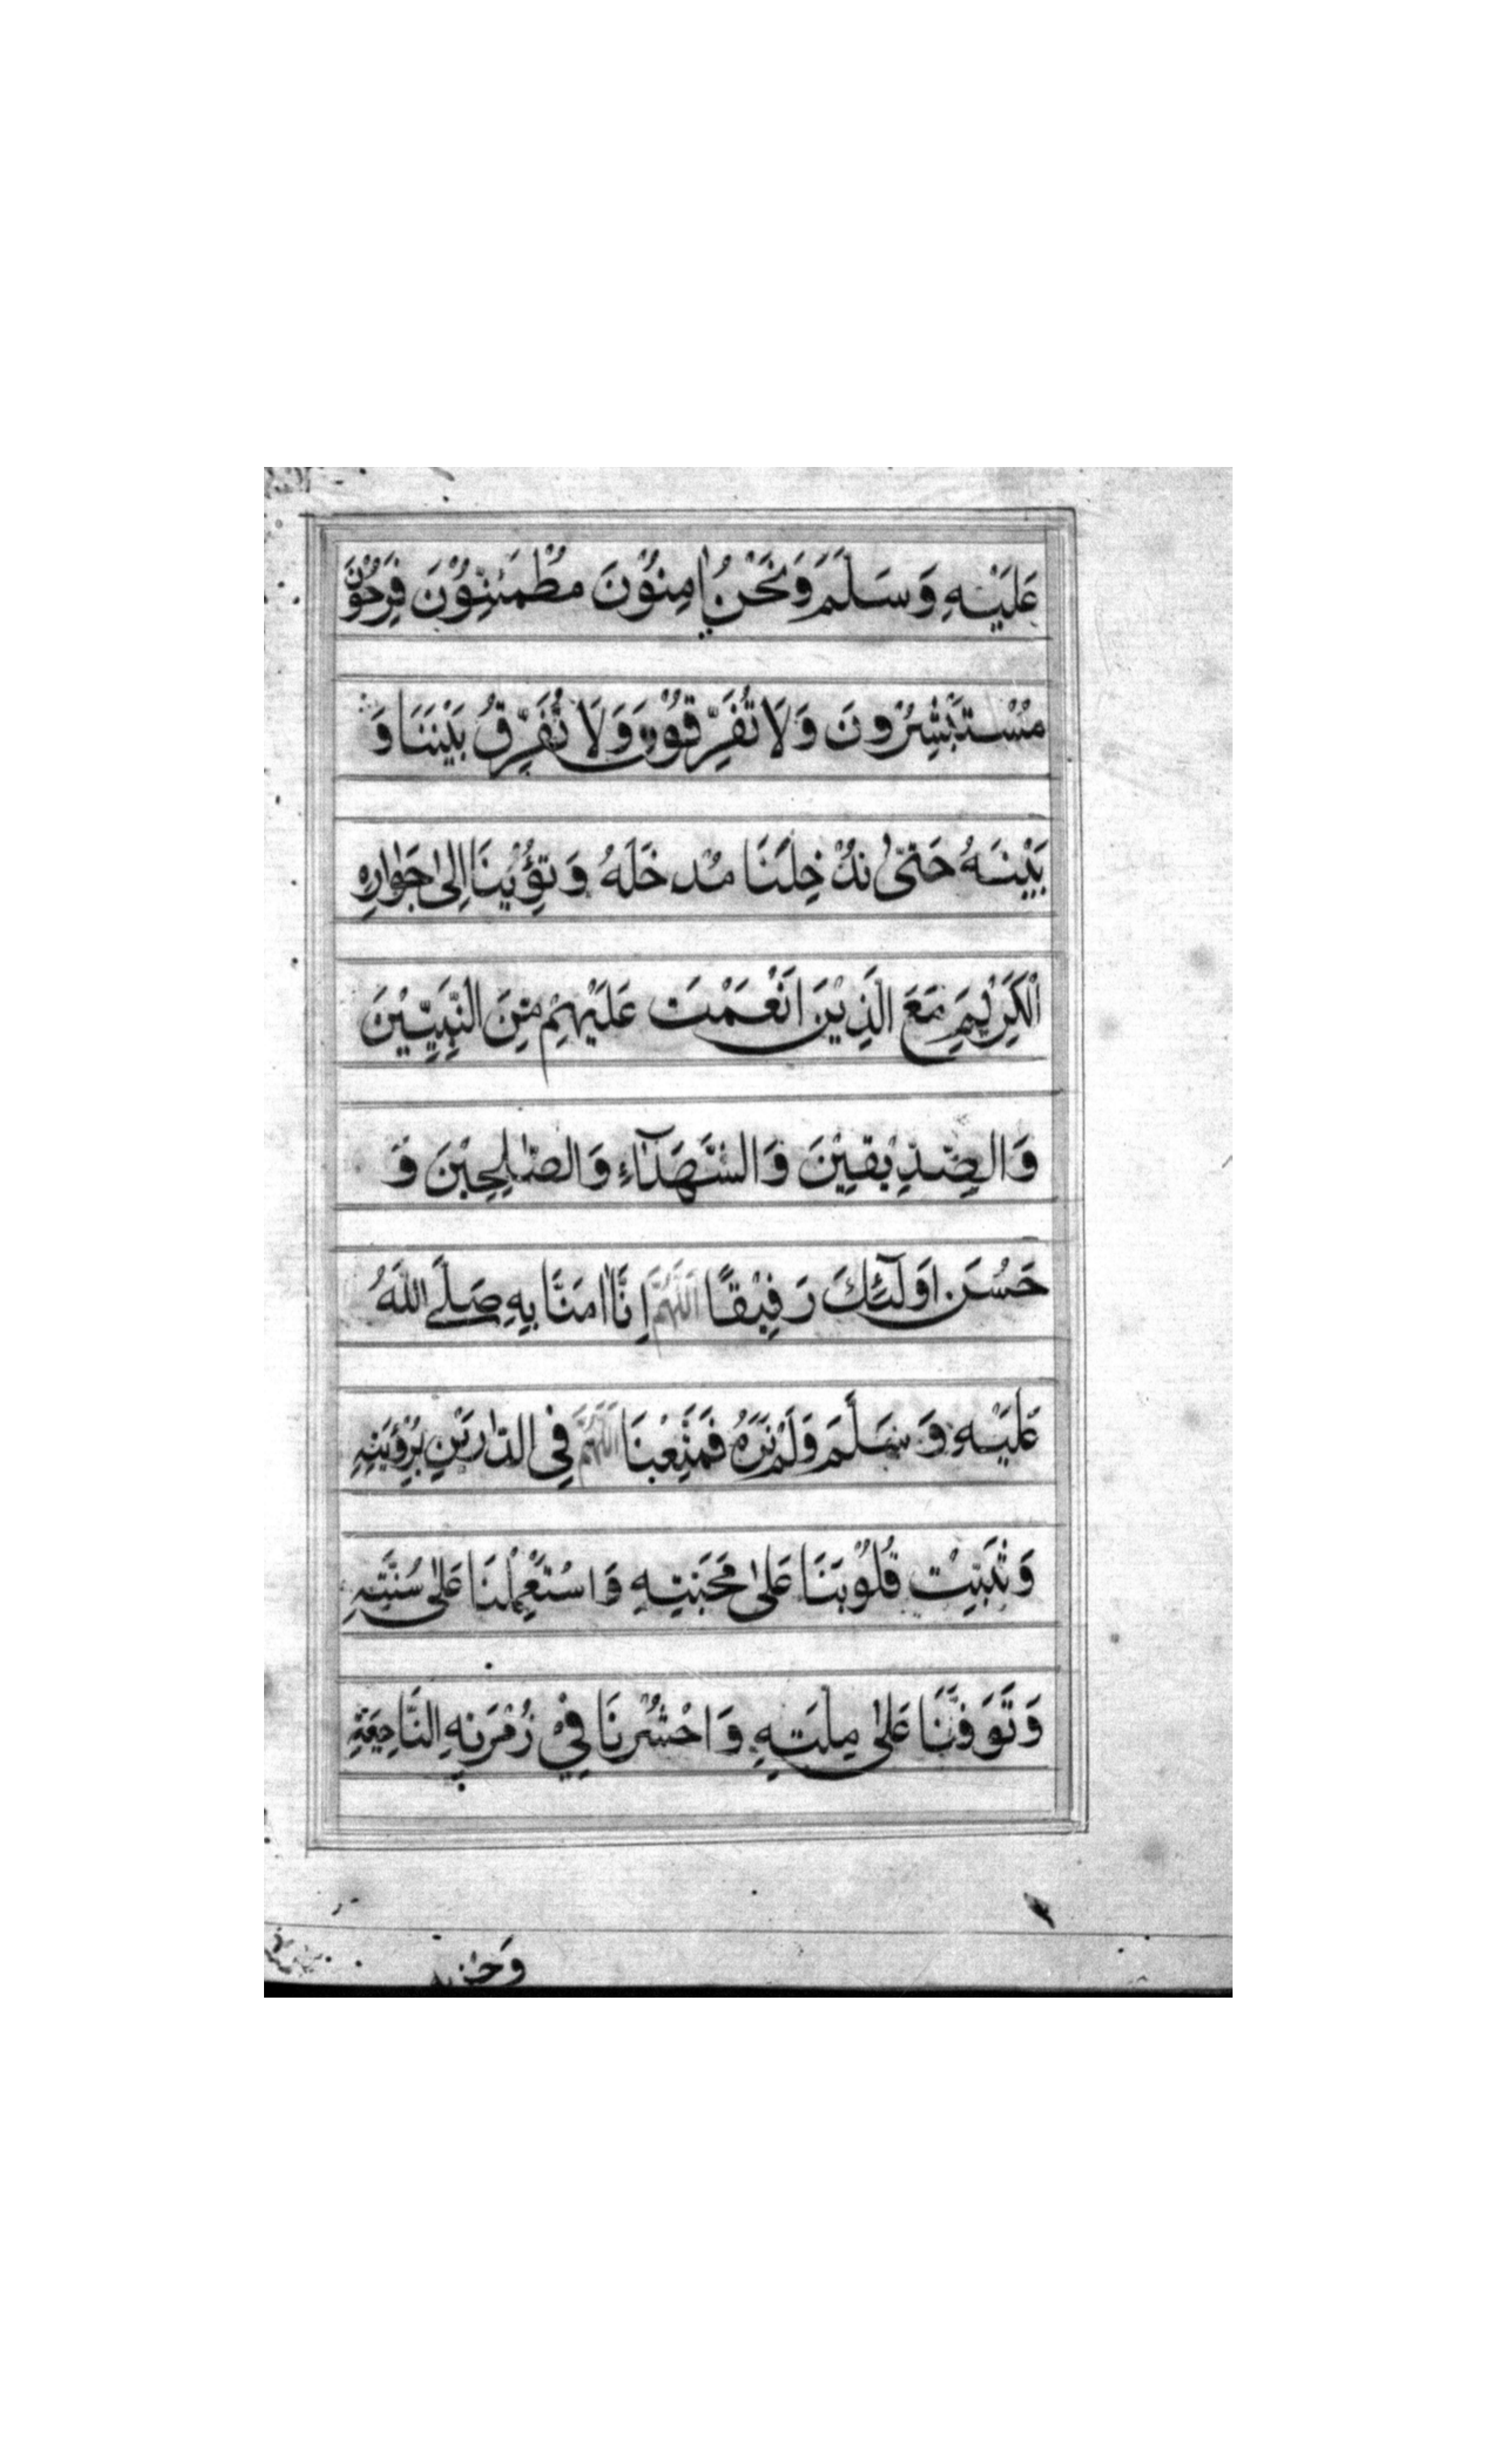 عَلَيْهِ وَسَلَّمَ وَنَحْنُ اٰمِنُوْنَ مُطْمَئِنُّوْنَ فَرِحُوْنَ
مُسْتَبْشِرُوْنَ وَلَا تُفَرِّقُوْنَ وَلَا تُفَرِّقُ بَيْنَنَا وَ
بَيْنَهُ حَتّٰى تُدْخِلَنَا مُدْخَلَهُ وَتُؤْوِيْنَا اِلٰى جَوَارِهِ
الْكَرِيْمِ مَعَ الَّذِيْنَ اَنْعَمْتَ عَلَيْهِمْ مِّنَ النَّبِيِّيْنَ
وَالصِّدِّيْقِيْنَ وَالشُّهَدَآءِ وَالصّٰلِحِيْنَ وَ
حَسُنَ اُولٰٓئِكَ رَفِيْقًا اَللّٰهُمَّ اِنَّا اٰمَنَّا بِهِ صَلَّى اللّٰهُ
عَلَيْهِ وَسَلَّمَ وَلَمْ نَرَهُ فَمَتِّعْنَا اَللّٰهُمَّ فِى الدَّارَيْنِ بِرُؤْيَتِهِ
وَثَبِّتْ قُلُوْبَنَا عَلٰى مَحَبَّتِهِ وَاسْتَعْمِلْنَا عَلٰى سُنَّتِهِ
وَتَوَفَّنَا عَلٰى مِلَّتِهِ وَاحْشُرْنَا فِيْ زُمْرَتِهِ النَّاجِيَةِ
وَحِزْبِهِ